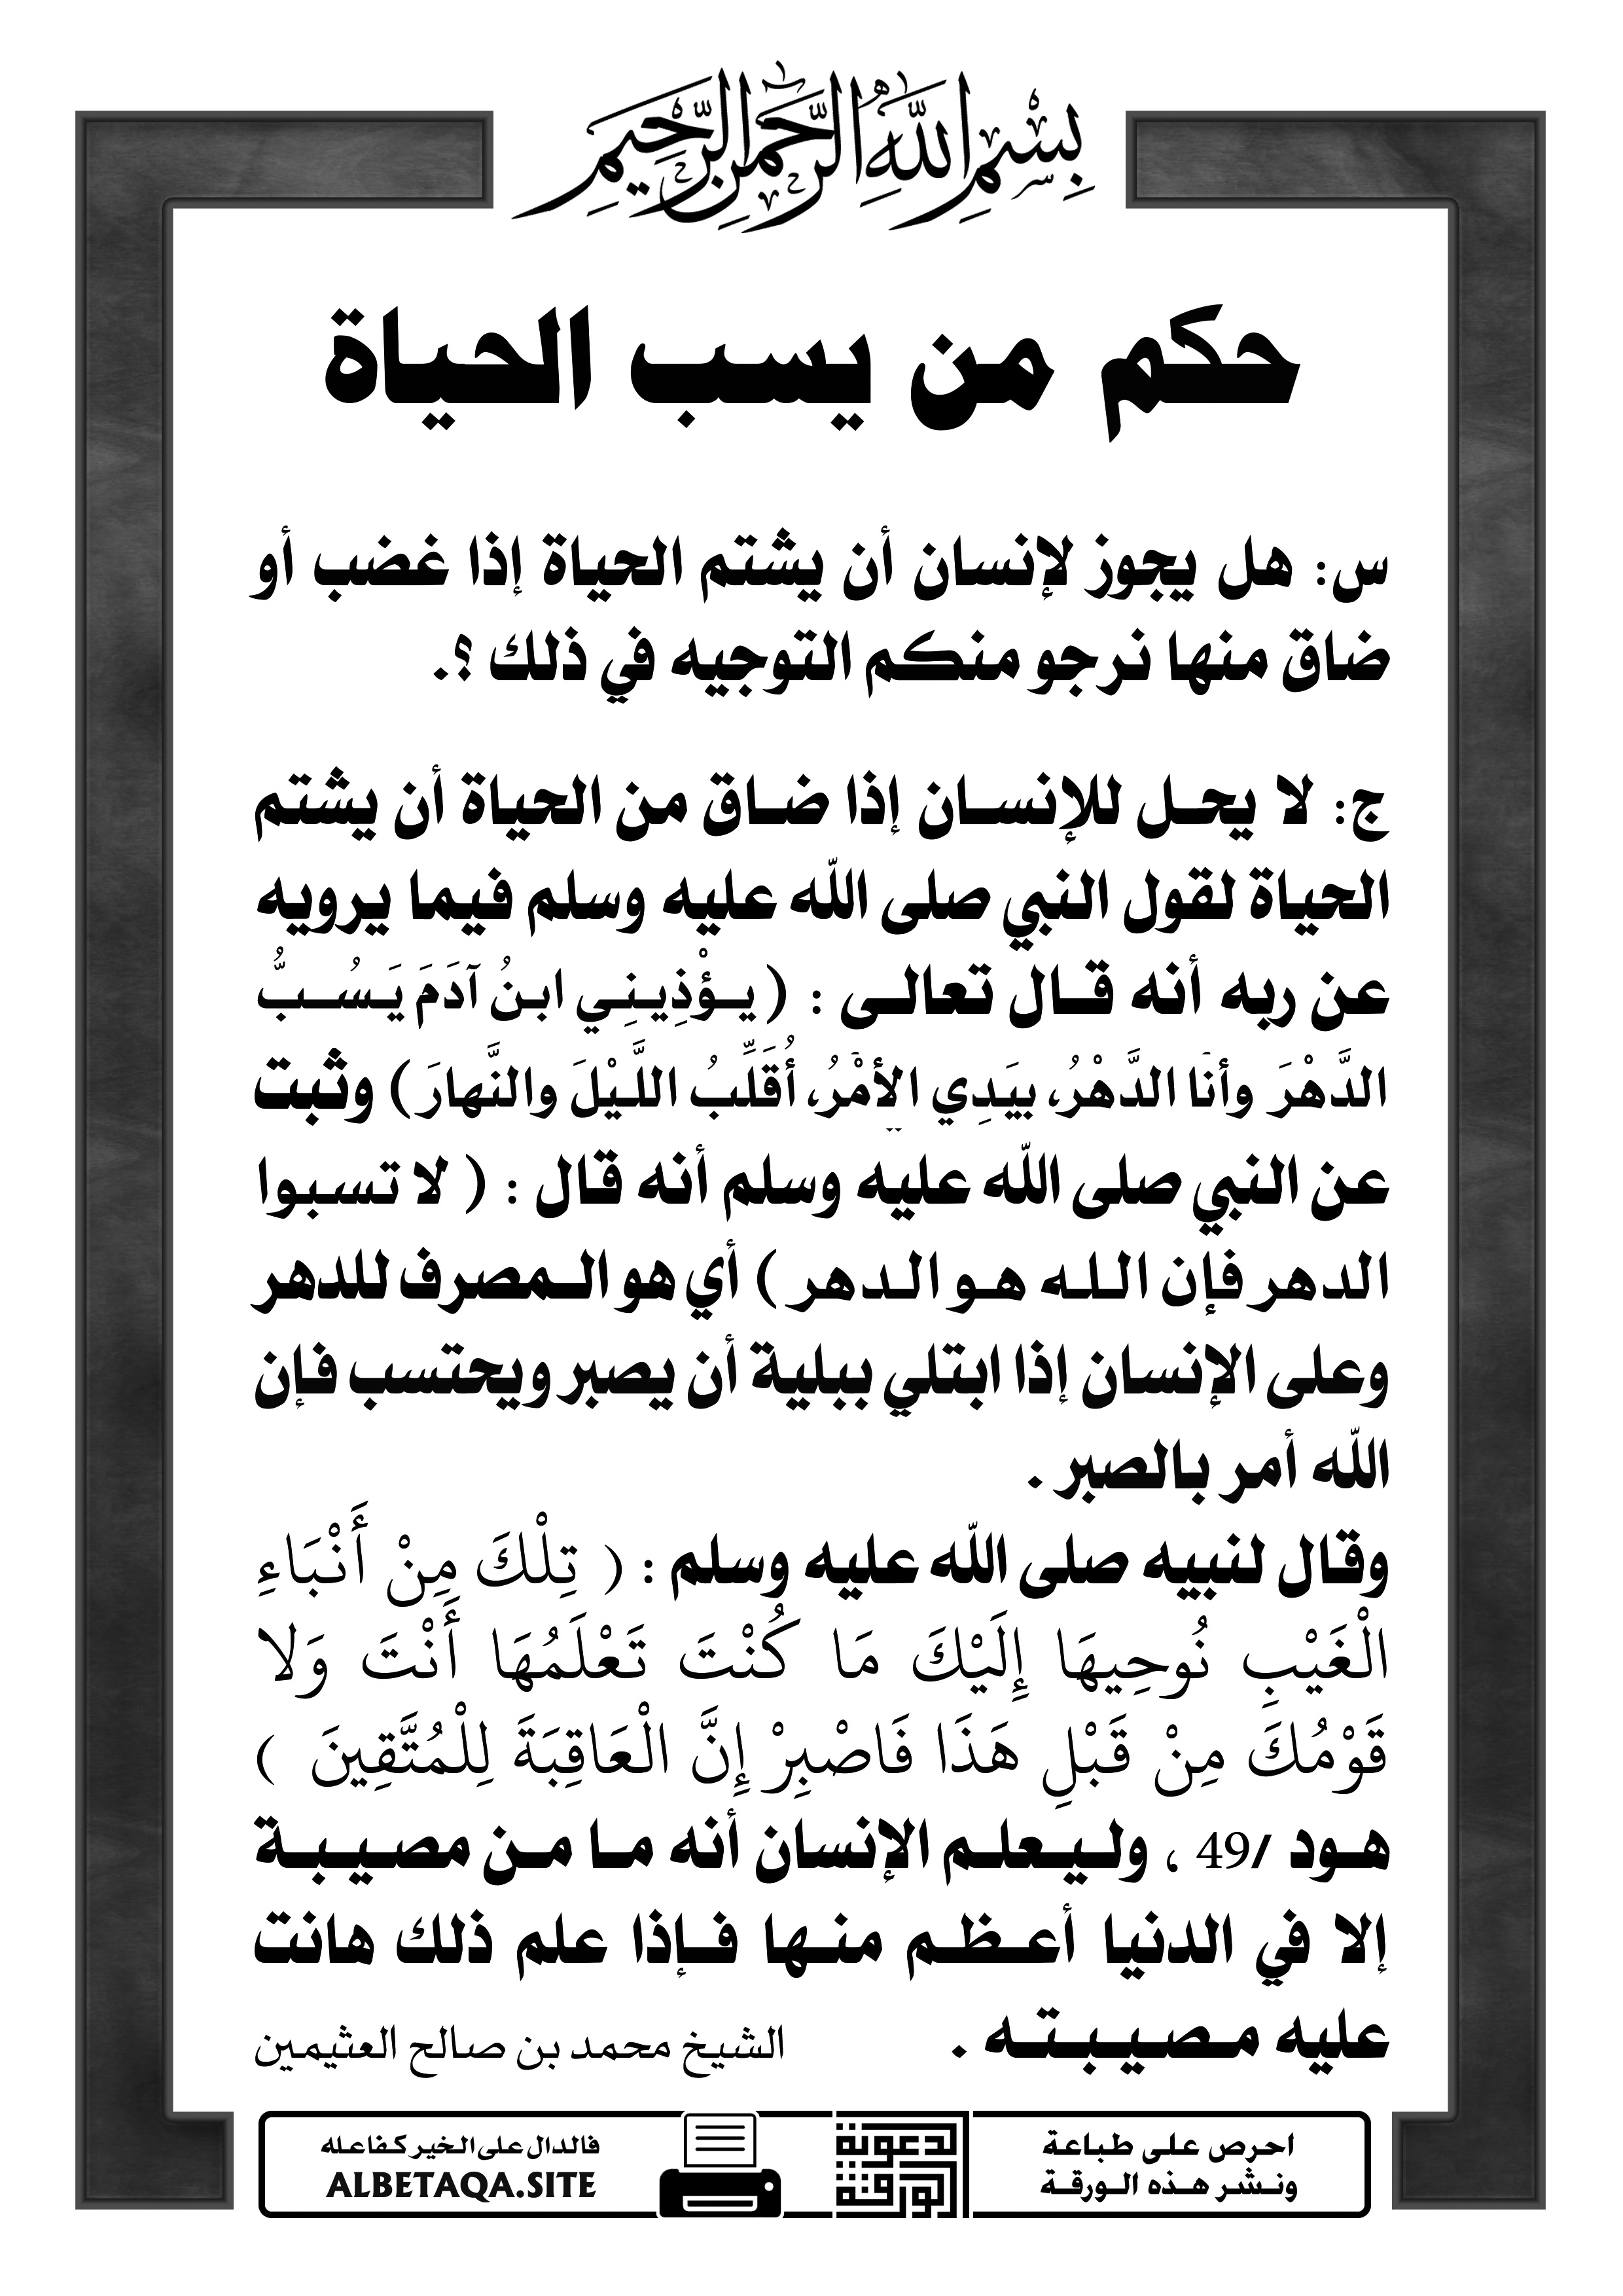 بِسْمِ اللَّهِ الرَّحْمَنِ الرَّحِيمِ
حكم من يسب الحياة
س: هل يجوز لإنسان أن يشتم الحياة إذا غضب أو
ضاق منها نرجو منكم التوجيه في ذلك ؟.
ج: لا يحل للإنسان إذا ضاق من الحياة أن يشتم
الحياة لقول النبي صلى الله عليه وسلم فيما يرويه
عن ربه أنه قال تعالى : ( يُؤْذِينِي ابنُ آدَمَ يَسُبُّ
الدَّهْرَ وأنَا الدَّهْرُ، بيَدِي الأمْرُ، أُقَلِّبُ اللَّيْلَ والنَّهارَ) وثبت
عن النبي صلى الله عليه وسلم أنه قال : ( لا تسبوا
الدهر فإن الله هو الدهر ) أي هو المصرف للدهر
وعلى الإنسان إذا ابتلي ببلية أن يصبر ويحتسب فإن
الله أمر بالصبر .
وقال لنبيه صلى الله عليه وسلم : ( تِلْكَ مِنْ أَنْبَاءِ
الْغَيْبِ نُوحِيهَا إِلَيْكَ مَا كُنْتَ تَعْلَمُهَا أَنْتَ وَلا
قَوْمُكَ مِنْ قَبْلِ هَذَا فَاصْبِرْ إِنَّ الْعَاقِبَةَ لِلْمُتَّقِينَ )
هود /49 ، وليعلم الإنسان أنه ما من مصيبة
إلا في الدنيا أعظم منها فإذا علم ذلك هانت
عليه مصيبته .
الشيخ محمد بن صالح العثيمين
احرص على طباعة
ونشر هذه الورقة
الورقة
الدعوية
فالدال على الخير كفاعله
ALBETAQA.SITE